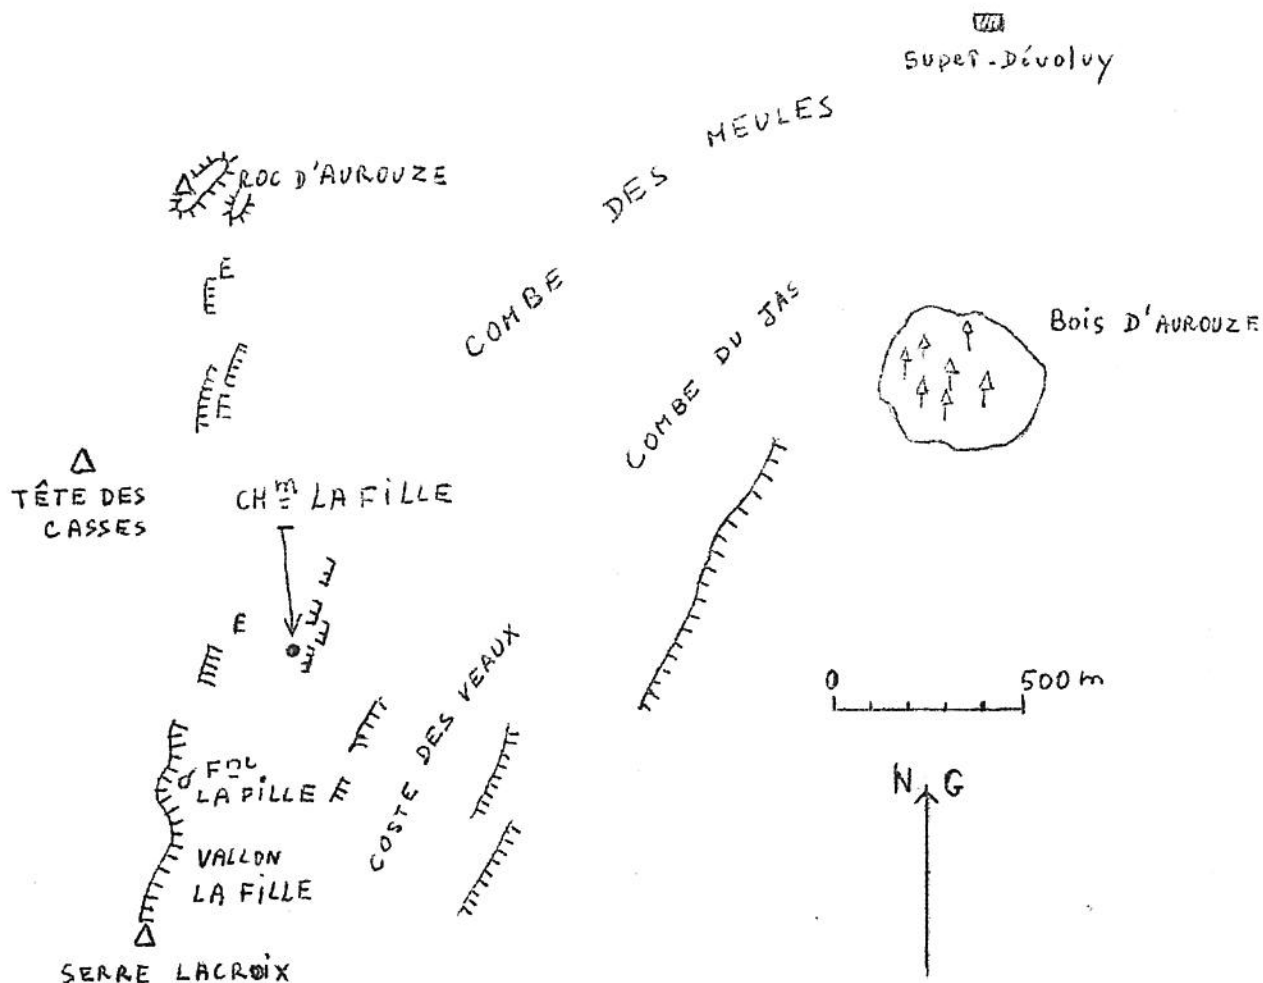 Super-Dévoluy
COMBE DES MEULES
ROC D'AUROUZE
COMBE DU JAS
Bois D'AUROUZE
TÊTE DES
CASSES
CHm LA FILLE
COSTE DES VEAUX
0 500m
Fne
LA FILLE
N G
VALLON
LA FILLE
SERRE LACROIX